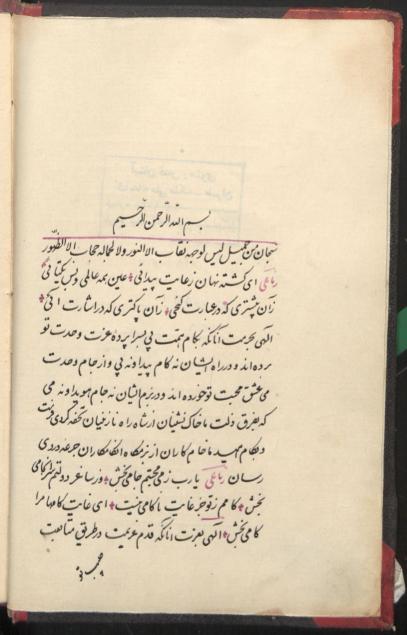 بسم الله الرحمن الرحیم
سبحان من جمیل لیس لوجهه نقاب الا النور ولا لجماله حجاب الا الظهور
رباعی ای گشته نهان ز غایت پیدائی عین همه عالمی و بس یکتائی
زان بیشتری که در عبارت گنجی زان پاکتری که در اشارت آئی
الهی بحرمت آنانکه بگام همت پی بسراپرده عزت وحدت تو
برده اند و در راه ایشان نه گام پیدا و نه پی و از جام وحدت
می عشق و محبت تو خورده اند و در بزم ایشان نه جام هویدا و نه می
که بفرق ذلت ما خاک نشینان از شاه راه نازنینان تحفه گردی
و بکام امید ما خام کاران از بزمگاه جرعه دردی
رسان رباعی یارب ز می محبتم جامی بخش
بخش کامم ز تو جز غایت ناکامی نیست ای غایت کامها مرا
کامی بخش الهی بعزت آنانکه قدم عزیمت در طریق متابعت